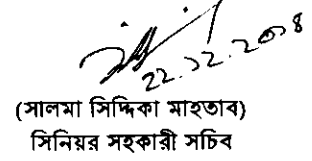 22.12.208
(সালমা সিদ্দিকা মাহতাব)
সিনিয়র সহকারী সচিব